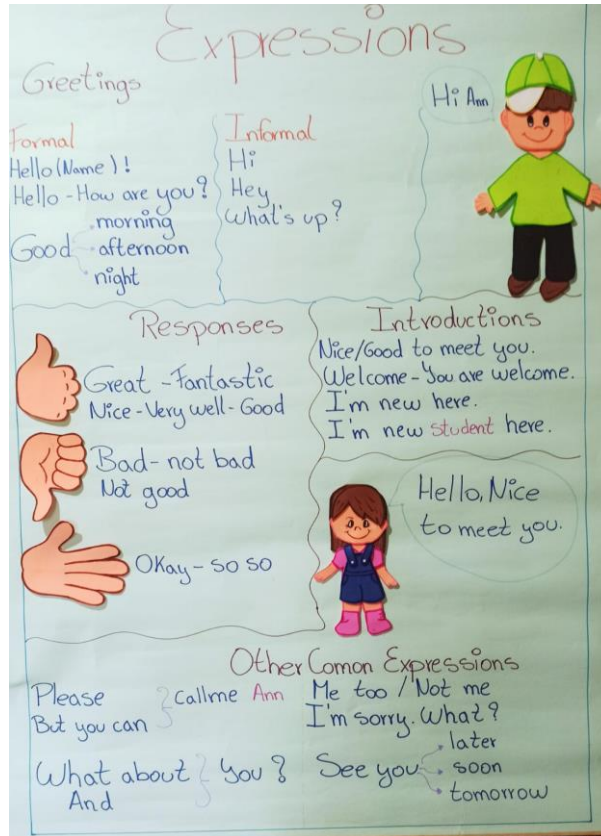 Expressions
Greetings
Formal
Hello (Name)!
Hello - How are you?
Good
morning
afternoon
night
Informal
Hi
Hey
What's up?
Hi Ann
Responses
Great - Fantastic
Nice - Very well - Good
Bad - not bad
Not good
Okay - so so
Introductions
Nice/Good to meet you.
Welcome - You are welcome.
I'm new here.
I'm new student here.
Hello, Nice
to meet you.
Other Comon Expressions
Please
But you can
callme Ann
What about
And
You?
Me too / Not me
I'm sorry. What?
See you
later
soon
tomorrow